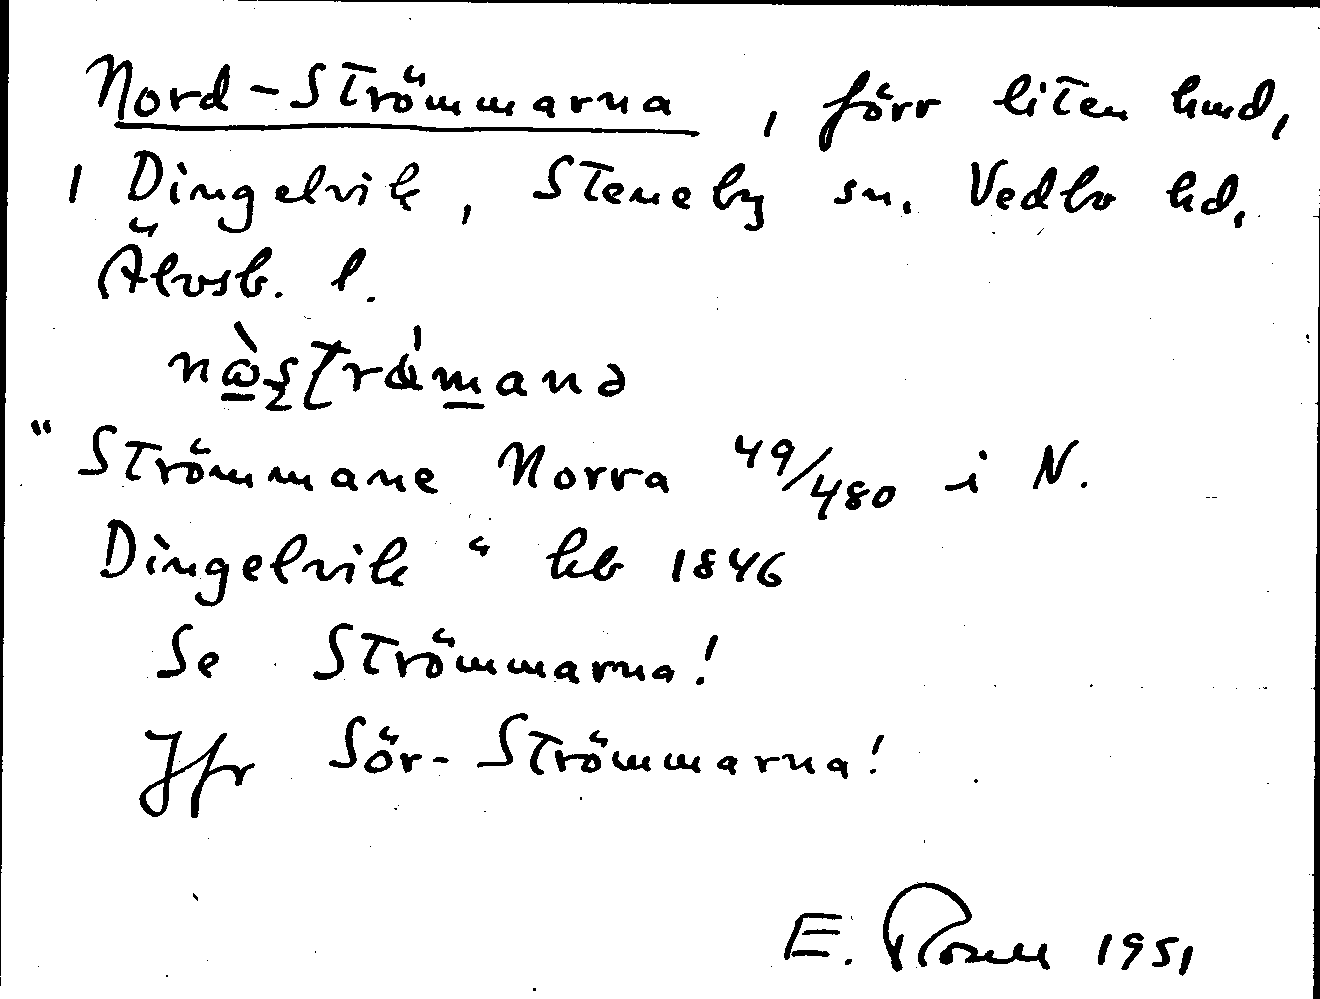 Nord-Strömmarna, förr liten hmd,
i Dingelvik, Steneby sn. Vedbo hd.
Älvsb. l.
"Strömmane Norra 49/480 i N.
Dingelvik" hb 1846
Se Strömmarna!
Jfr Sör-Strömmarna!
E. Rosell 1951